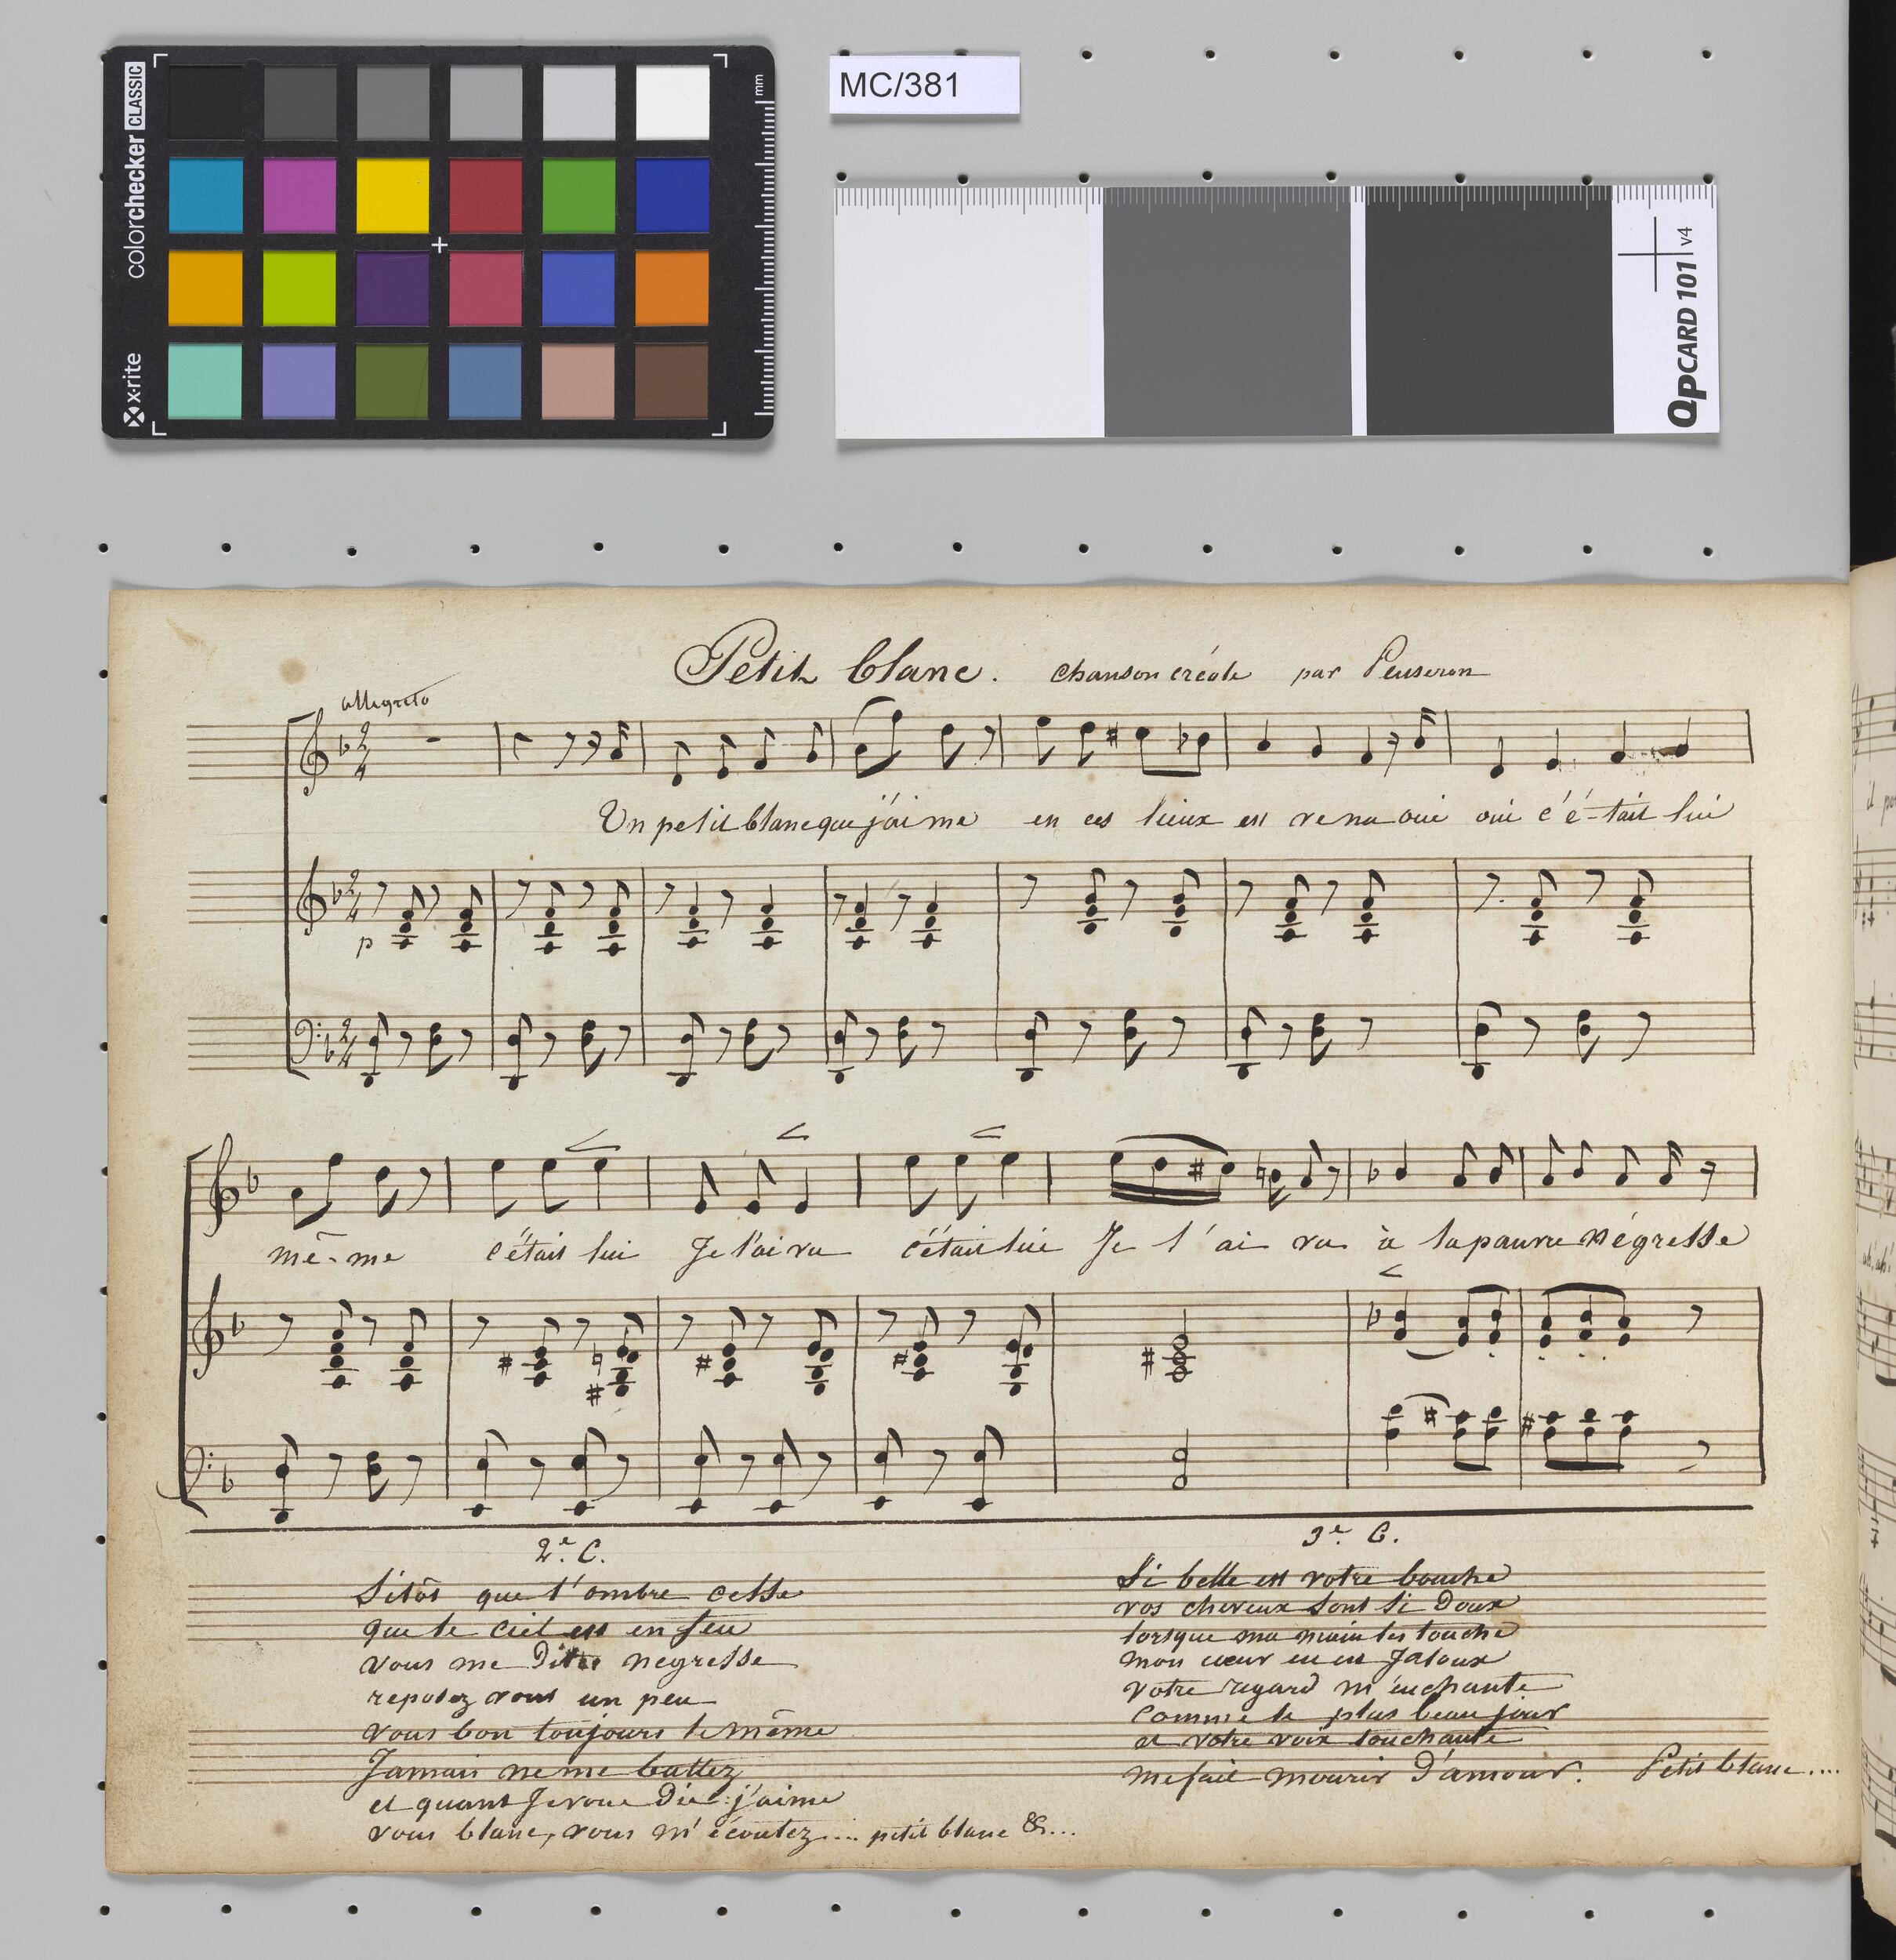 colorchecker CLASSIC
x-rite
mm
MC/381
QPCARD 101 v4
Petit blanc. chanson créole par Penseron
allegreto
Un petit blanc que j'aime en ces lieux est venu oui oui c'é-tait lui
p
mê-me c'était lui Je l'ai vu c'était lui Je l'ai vu à la pauvre négresse
2e. C.
Sitôt que l'ombre cesse
que le ciel est en feu
vous me Dites negresse
reposez vous un peu
vous bon toujours le même
Jamais ne me battez
et quant Je vous Die j'aime
vous blanc, vous m'écoutez... petit blanc &...
3e. C.
Si belle est votre bouche
vos cheveux sont si Doux
lorsque ma main les touche
mon cœur en est Jaloux
votre regard m'enchante
comme le plus beau jour
et votre voix touchante
me fait mourir D'amour. Petit blanc....